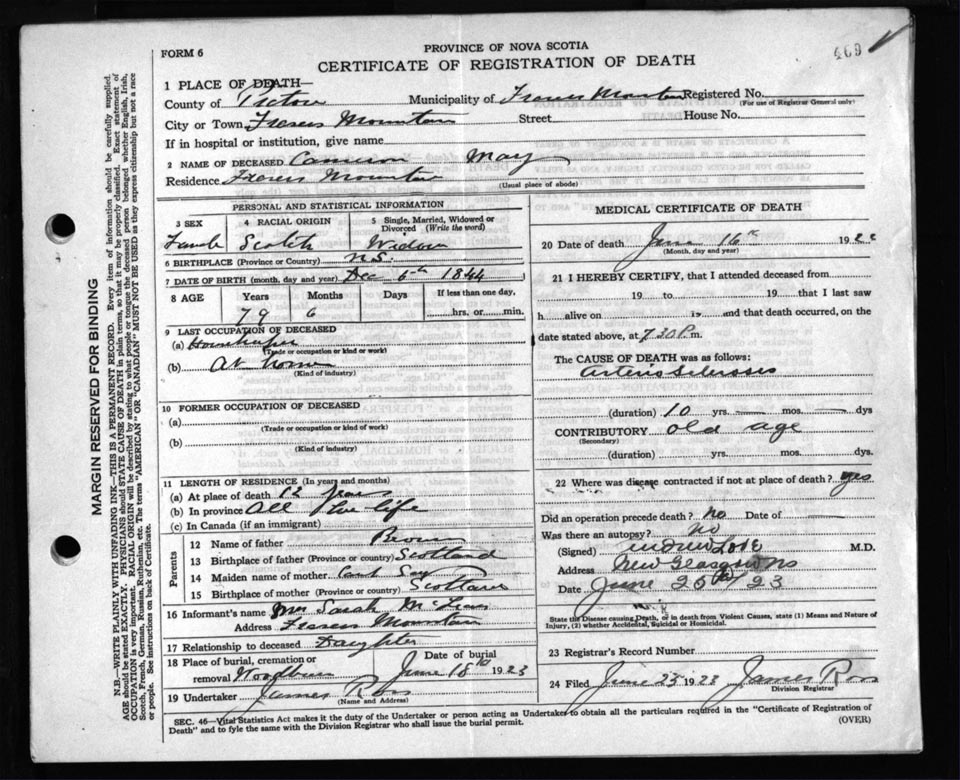 FORM 6
PROVINCE OF NOVA SCOTIA
469
CERTIFICATE OF REGISTRATION OF DEATH
1 PLACE OF DEATH—
County of Pictou Municipality of Frasers Mountain Registered No.
(For use of Registrar General only)
City or Town Frasers Mountain Street House No.
If in hospital or institution, give name
2 NAME OF DECEASED Cameron May
Residence Frasers Mountain
(Usual place of abode)
PERSONAL AND STATISTICAL INFORMATION
3 SEX 4 RACIAL ORIGIN 5 Single, Married, Widowed or Divorced (Write the word)
Female Scotch Widow
6 BIRTHPLACE (Province or Country) N.S.
7 DATE OF BIRTH (month, day and year) Dec 6th 1844
8 AGE Years Months Days If less than one day,
79 6 hrs. or min.
9 LAST OCCUPATION OF DECEASED
(a) Housekeeper
(Trade or occupation or kind or work)
(b) At home
(Kind of industry)
10 FORMER OCCUPATION OF DECEASED
(a)
(Trade or occupation or kind of work)
(b)
(Kind of industry)
11 LENGTH OF RESIDENCE (In years and months)
(a) At place of death 12 years
(b) In province All life
(c) In Canada (if an immigrant)
Parents
12 Name of father Brown
13 Birthplace of father (Province or country) Scotland
14 Maiden name of mother Cant Say
15 Birthplace of mother (Province or country) Scotland
16 Informant's name Mrs Sarah
Address Frasers Mountain
17 Relationship to deceased Daughter
18 Place of burial, cremation or removal Woodburn Date of burial June 18th 1923
19 Undertaker James Ross
(Name and Address)
MEDICAL CERTIFICATE OF DEATH
20 Date of death June 16th 192
(Month, day and year)
21 I HEREBY CERTIFY, that I attended deceased from
19 to 19 that I last saw
h alive on 19 and that death occurred, on
date stated above, at 7.30 P.m.
The CAUSE OF DEATH was as follows:
arterio sclerosis
(duration) 10 yrs. — mos. — dys
CONTRIBUTORY old age
(Secondary)
(duration) yrs. mos. dys
22 Where was disease contracted if not at place of death? yes
Did an operation precede death? No Date of —
Was there an autopsy? No
(Signed) Love M.D.
Address New Glasgow NS
Date June 25th / 23
State the Disease causing Death, or in death from Violent Causes, state (1) Means and Nature of
Injury, (2) whether Accidental, Suicidal or Homicidal.
23 Registrar's Record Number
24 Filed June 25 1923 James Ross
Division Registrar
SEC. 46—Vital Statistics Act makes it the duty of the Undertaker or person acting as Undertaker to obtain all the particulars required in the "Certificate of Registration of
Death" and to fyle the same with the Division Registrar who shall issue the burial permit.
(OVER)
MARGIN RESERVED FOR BINDING
N.B.—WRITE PLAINLY WITH UNFADING INK—THIS IS A PERMANENT RECORD. Every item of information should be carefully supplied.
AGE should be stated EXACTLY. PHYSICIANS should STATE CAUSE OF DEATH in plain terms, so that it may be properly classified. Exact statement of
OCCUPATION is very important. RACIAL ORIGIN will be described by stating to what people or tongue the deceased person belonged, whether English, Irish,
Scotch, French, German, Russian, Ruthenian, etc. The terms "AMERICAN" or "CANADIAN" MUST NOT BE USED as they express citizenship but not a race
or people. See instructions on back of Certificate.